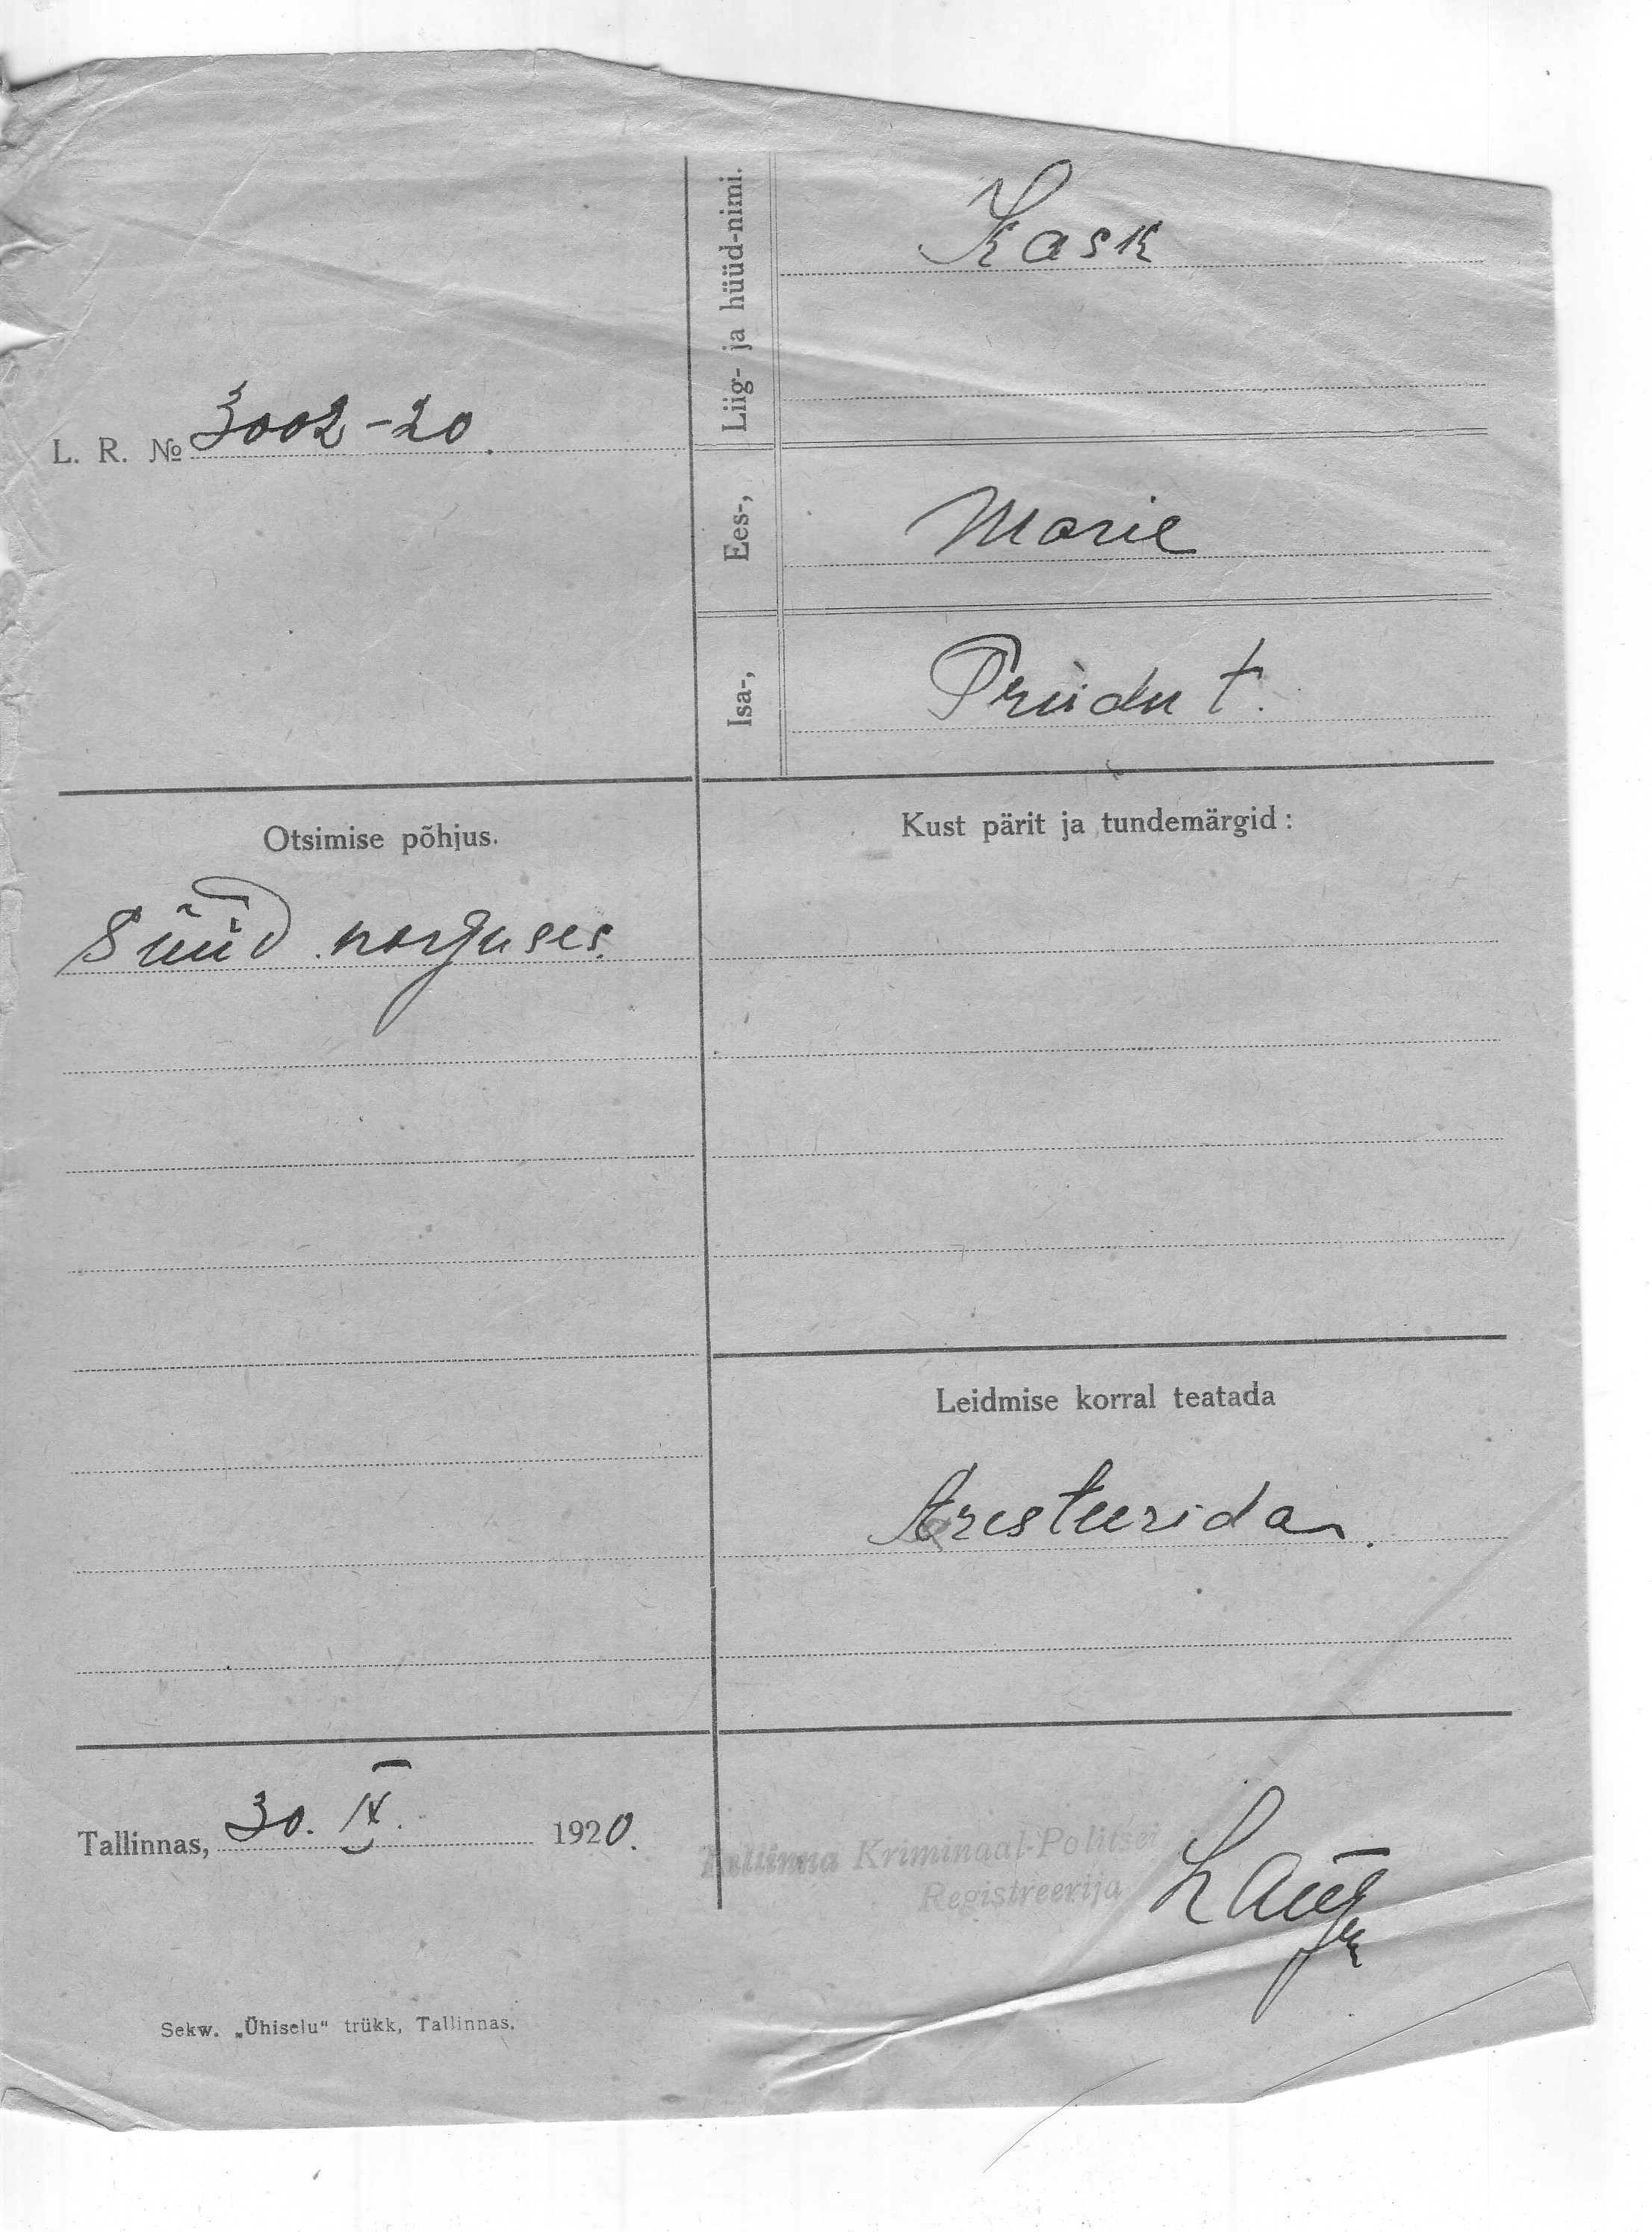 L. R. № 3002-20.
Liig- ja hüüd-nimi.
Kask
Ees-,
Marie
Isa-,
Priidu t.
Otsimise põhjus.
Süüd. norguses.
Kust pärit ja tundemärgid:
Leidmise korral teatada
Aresteerida.
Tallinnas, 30. IX. 1920.
Tallinna Kriminaal-Politsei
Registreerija
Sekw. „Ühiselu“ trükk, Tallinnas.